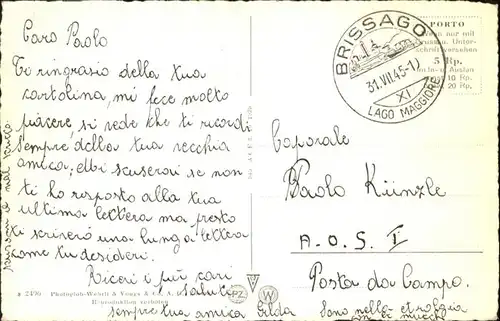 Caro Paolo
Ti ringrasio della tua
cartolina, mi fece molto
piacere, si vede che ti ricordi
sempre della tua vecchia
amica, ebbi scuserai se non
ti ho resposto alla tua
ultima lettera ma presto
ti scriverò una lunga lettera
come tu desideri.
Ricevi i più cari
saluti
sempre tua amica Gilda
scritto
2496 Photoglob-Wehrli & Vouga & Co. A.
Reproduktion verboten
PZ W
BRISSAGO
31.VII.45-1
XI
LAGO MAGGIORE
PORTO
Wenn nur mit
Unter-
schrift versehen
5 Rp.
10 Rp.
20 Rp.
Caporale
Paolo Künzle
A.O.S. I
Posta da Campo.
Sono nella